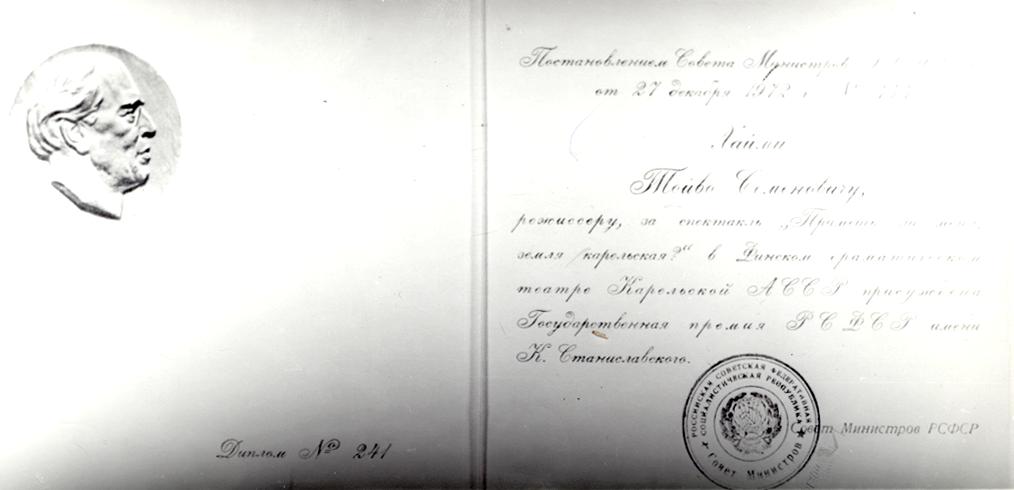 Диплом № 241
Постановлением Совета Министров
от 27 декабря 1972 г. №
Хайми
Тойво Семеновичу,
режиссеру, за спектакль „Примешь ли меня,
земля карельская?“ в Финском драматическом
театре Карельской АССР присуждена
Государственная премия РСФСР имени
К. Станиславского.
РОССИЙСКАЯ СОВЕТСКАЯ ФЕДЕРАТИВНАЯ
СОЦИАЛИСТИЧЕСКАЯ РЕСПУБЛИКА
Совет Министров
Совет Министров РСФСР